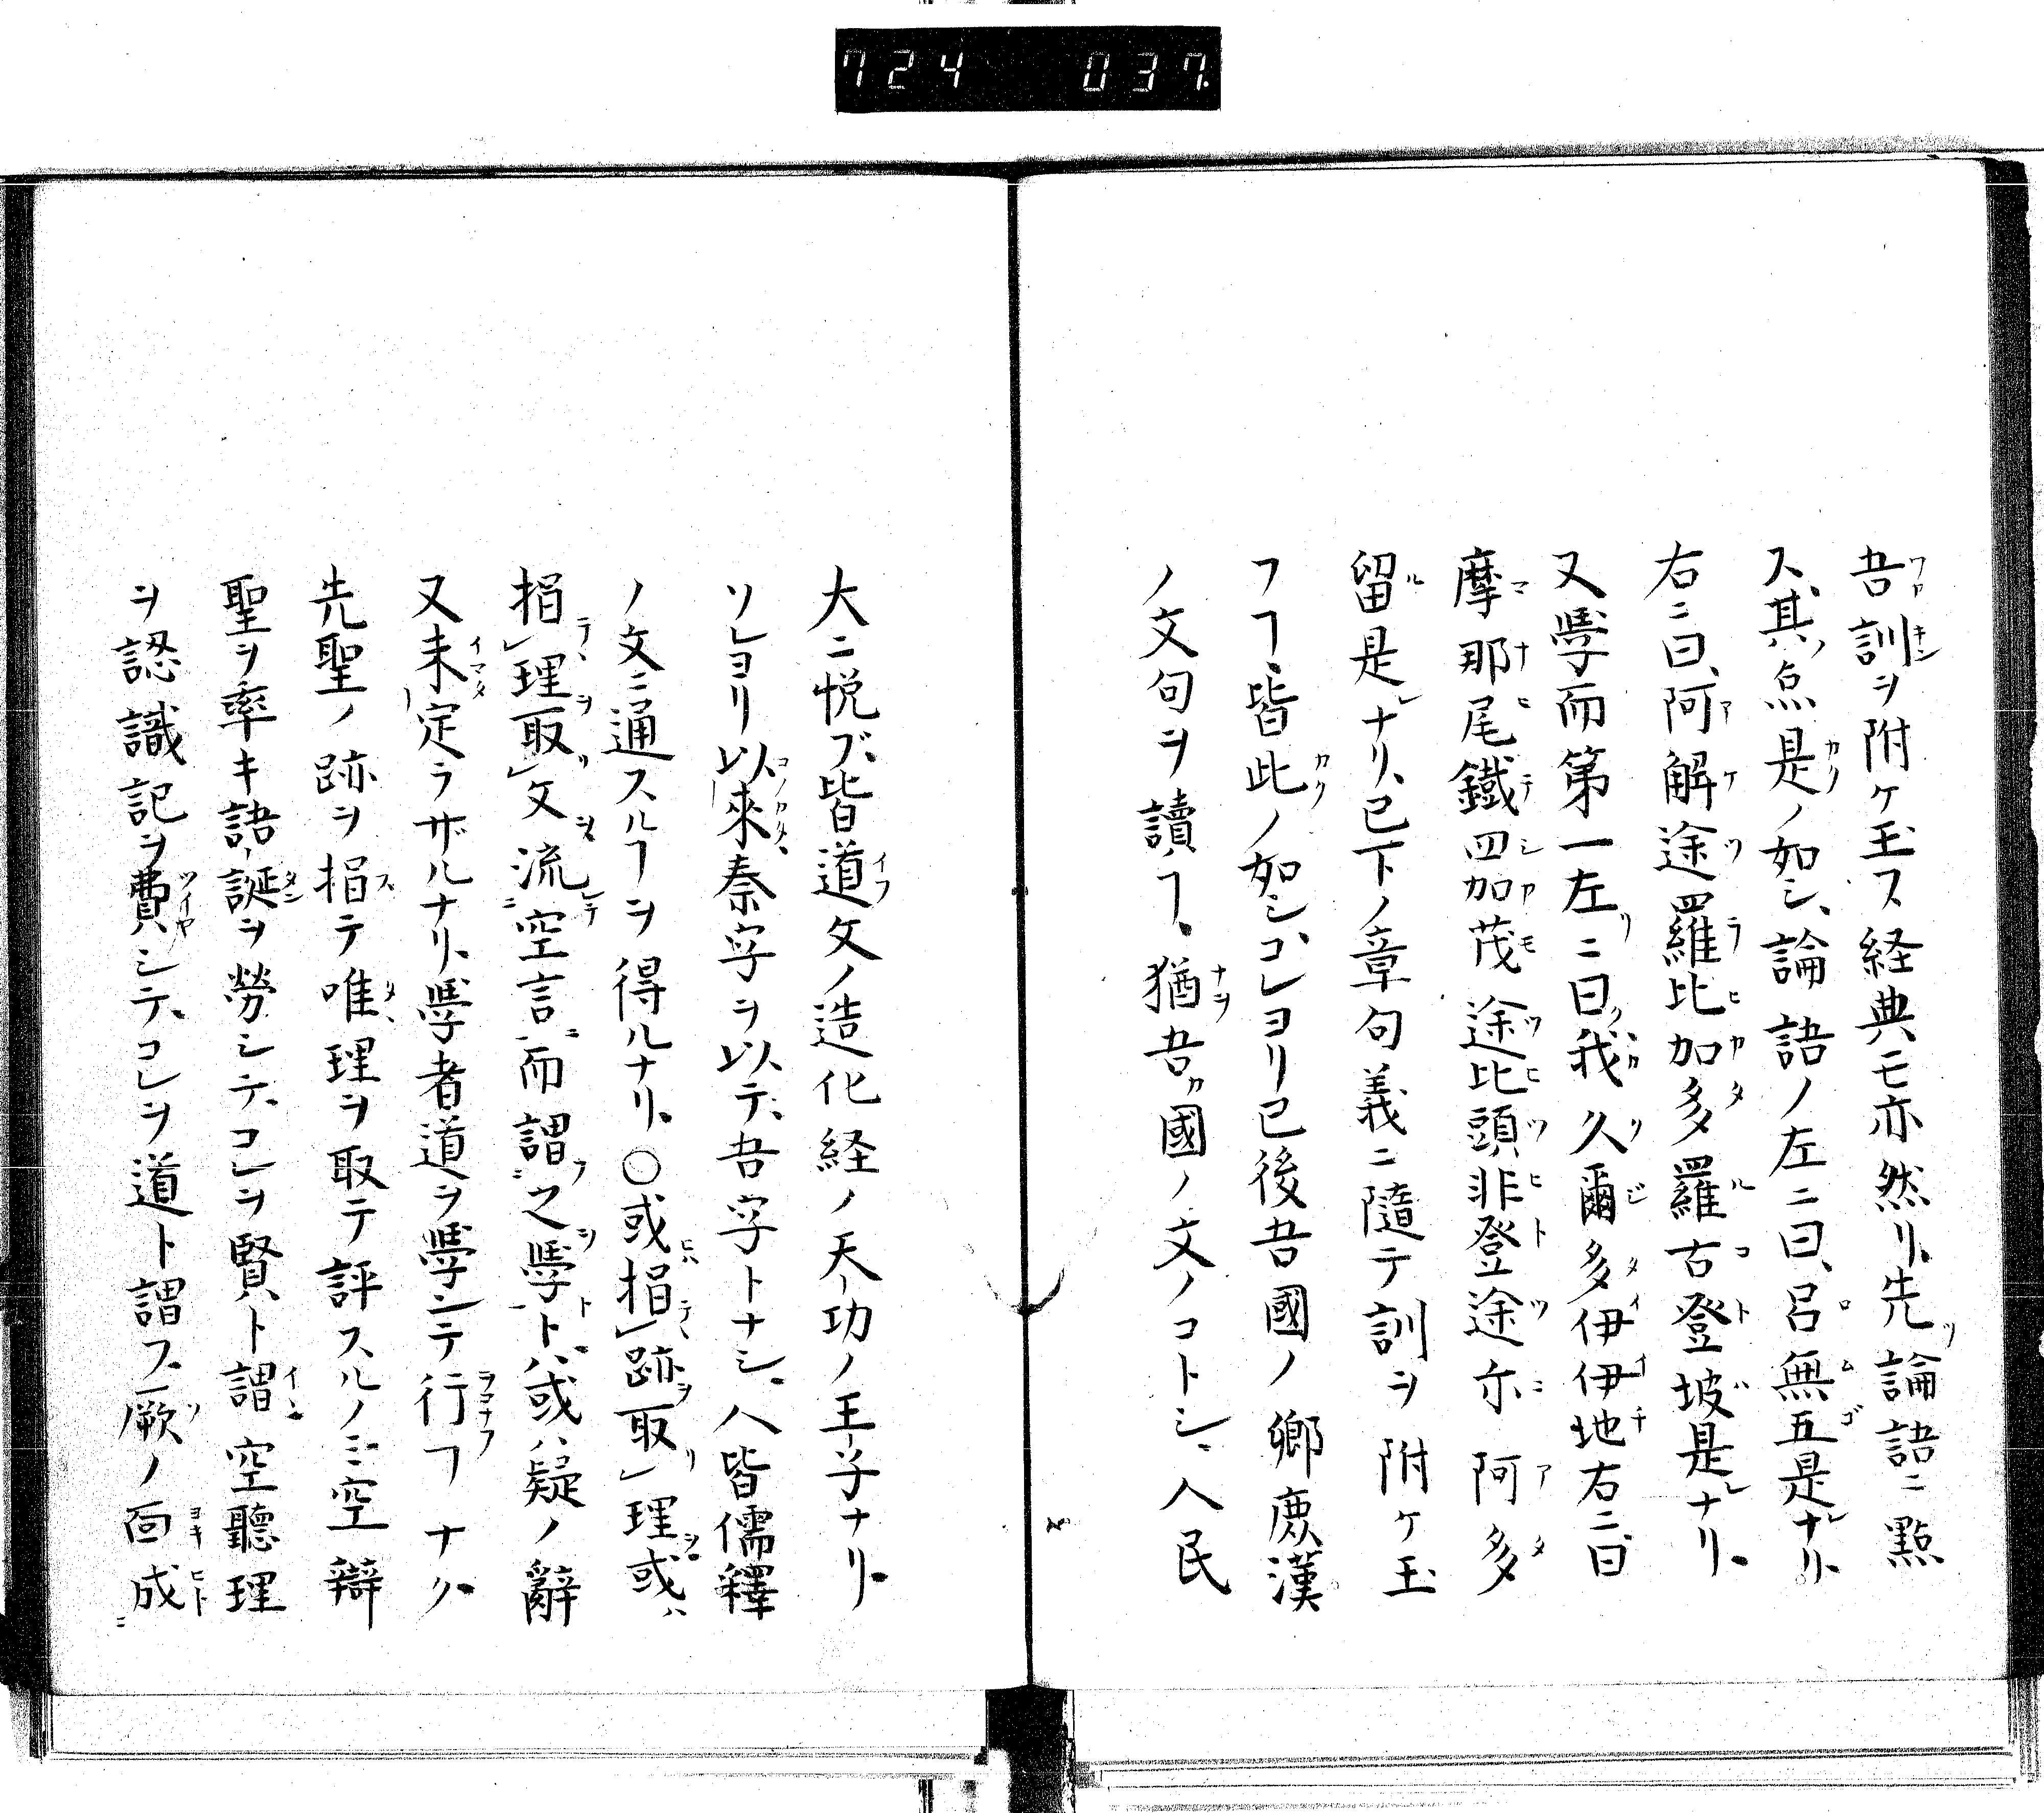 724 037.
吾訓ヲ附ケ玉ス経典モ亦然リ、先論語ニ點
ス、其ノ点是ノ如シ、論語ノ左ニ曰、呂無五是ナリ、
右ニ曰、阿解途羅比加多羅古登坡是ナリ、
又學而第一左ニ曰、我久爾多伊伊地右ニ曰
摩那尾鐵四加茂途比頭非登途尓阿多
留是ナリ、已下ノ章句義ニ隨テ訓ヲ附ケ玉
フヿ、皆此ノ如シ、コレヨリ已後吾國ノ鄉鹿漢
ノ文句ヲ讀ヿ、猶吾國ノ文ノコトシ、人民
大ニ悦ブ、皆道文ノ造化経ノ天功ノ王子ナリ、
ソレヨリ以來秦字ヲ以テ、吾字トナシ、人皆儒釋
ノ文ニ通スルヿヲ得ルナリ、〇或捐跡取理或ハ
捐理取文流空言而謂之學トハ、或ハ疑ノ辭
又未定ラザルナリ、學者道ヲ學ンテ行フヿナク
先聖ノ跡ヲ捐テ唯理ヲ取テ評スルノミ空辯
聖ヲ率キ語誕ヲ勞シテ、コレヲ賢ト謂空聽理
ヲ認識記ヲ費シテ、コレヲ道ト謂フ、厥ノ面成